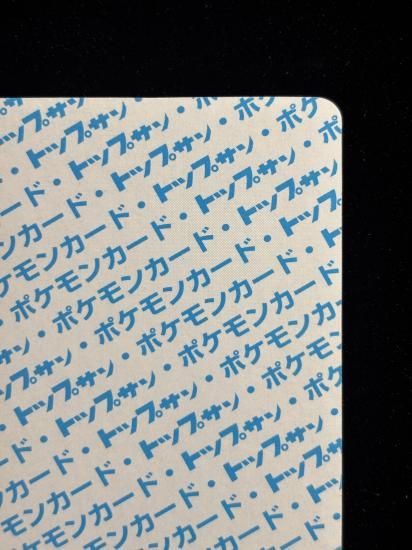 ップサン
トップサン・
ド・トップサン・ポ
カード・トップサン・ポケ
ンカード・トップサン・ポケ
ケモンカード・トップサン・ポ
・ポケモンカード・トップサン
・ポケモンカード・トップ
サン・ポケモンカード・ト
トップサン・ポケモンカード・
トップサン・ポケモンカー
・トップサン・ポケモン
ド・トップサン・ポ
カード・トップサン・
ンカード・トップサン
モンカード・トップ
ケモンカード・ト
ンカード・